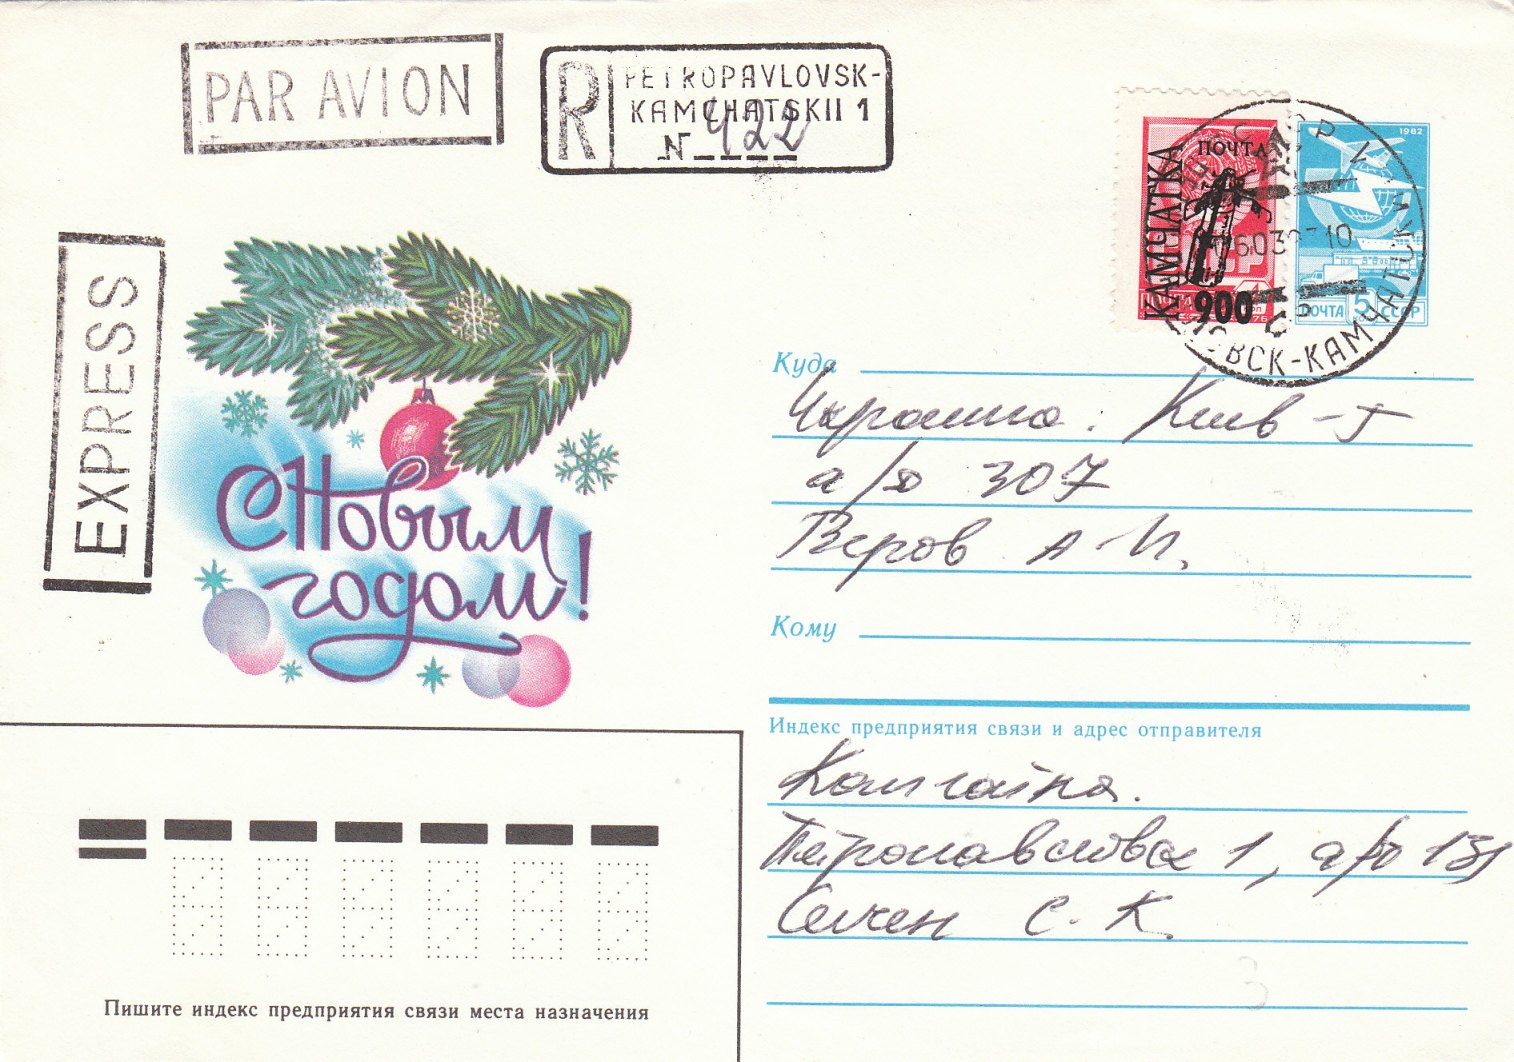 PAR AVION
R
PETROPAVLOVSK-
KAMCHATSKII 1
N 422
EXPRESS
КАМЧАТКА
ПОЧТА
900
1982
ПОЧТА 5 СССР
С Новым
годом!
Куда
Украина. Киев -
а/я 307
Веров А-И.
Кому
Индекс предприятия связи и адрес отправителя
Камчатка.
Петропавловск 1, а/я
С. К.
Пишите индекс предприятия связи места назначения